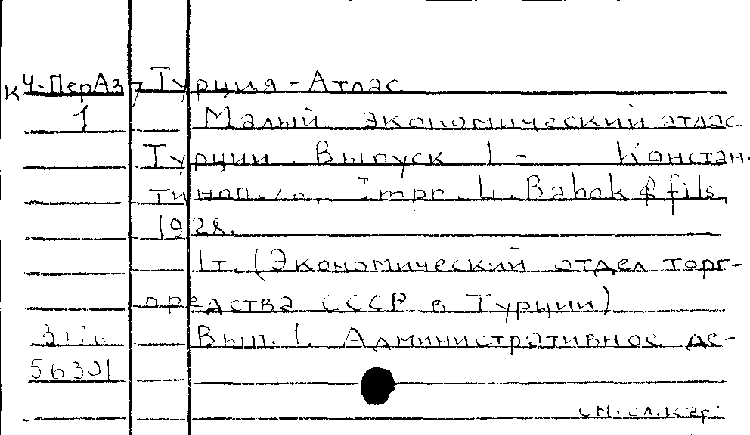 К Ч-ПерАз Турция - Атлас
1 Малый экономический атлас
Турции. Выпуск 1 - Констан-
тинополь, Impr. L. Babok & fils,
1928.
1т. (Экономический отдел торг-
предства СССР в Турции)
Вып. 1. Административное де-
56301
см. сл. кар.